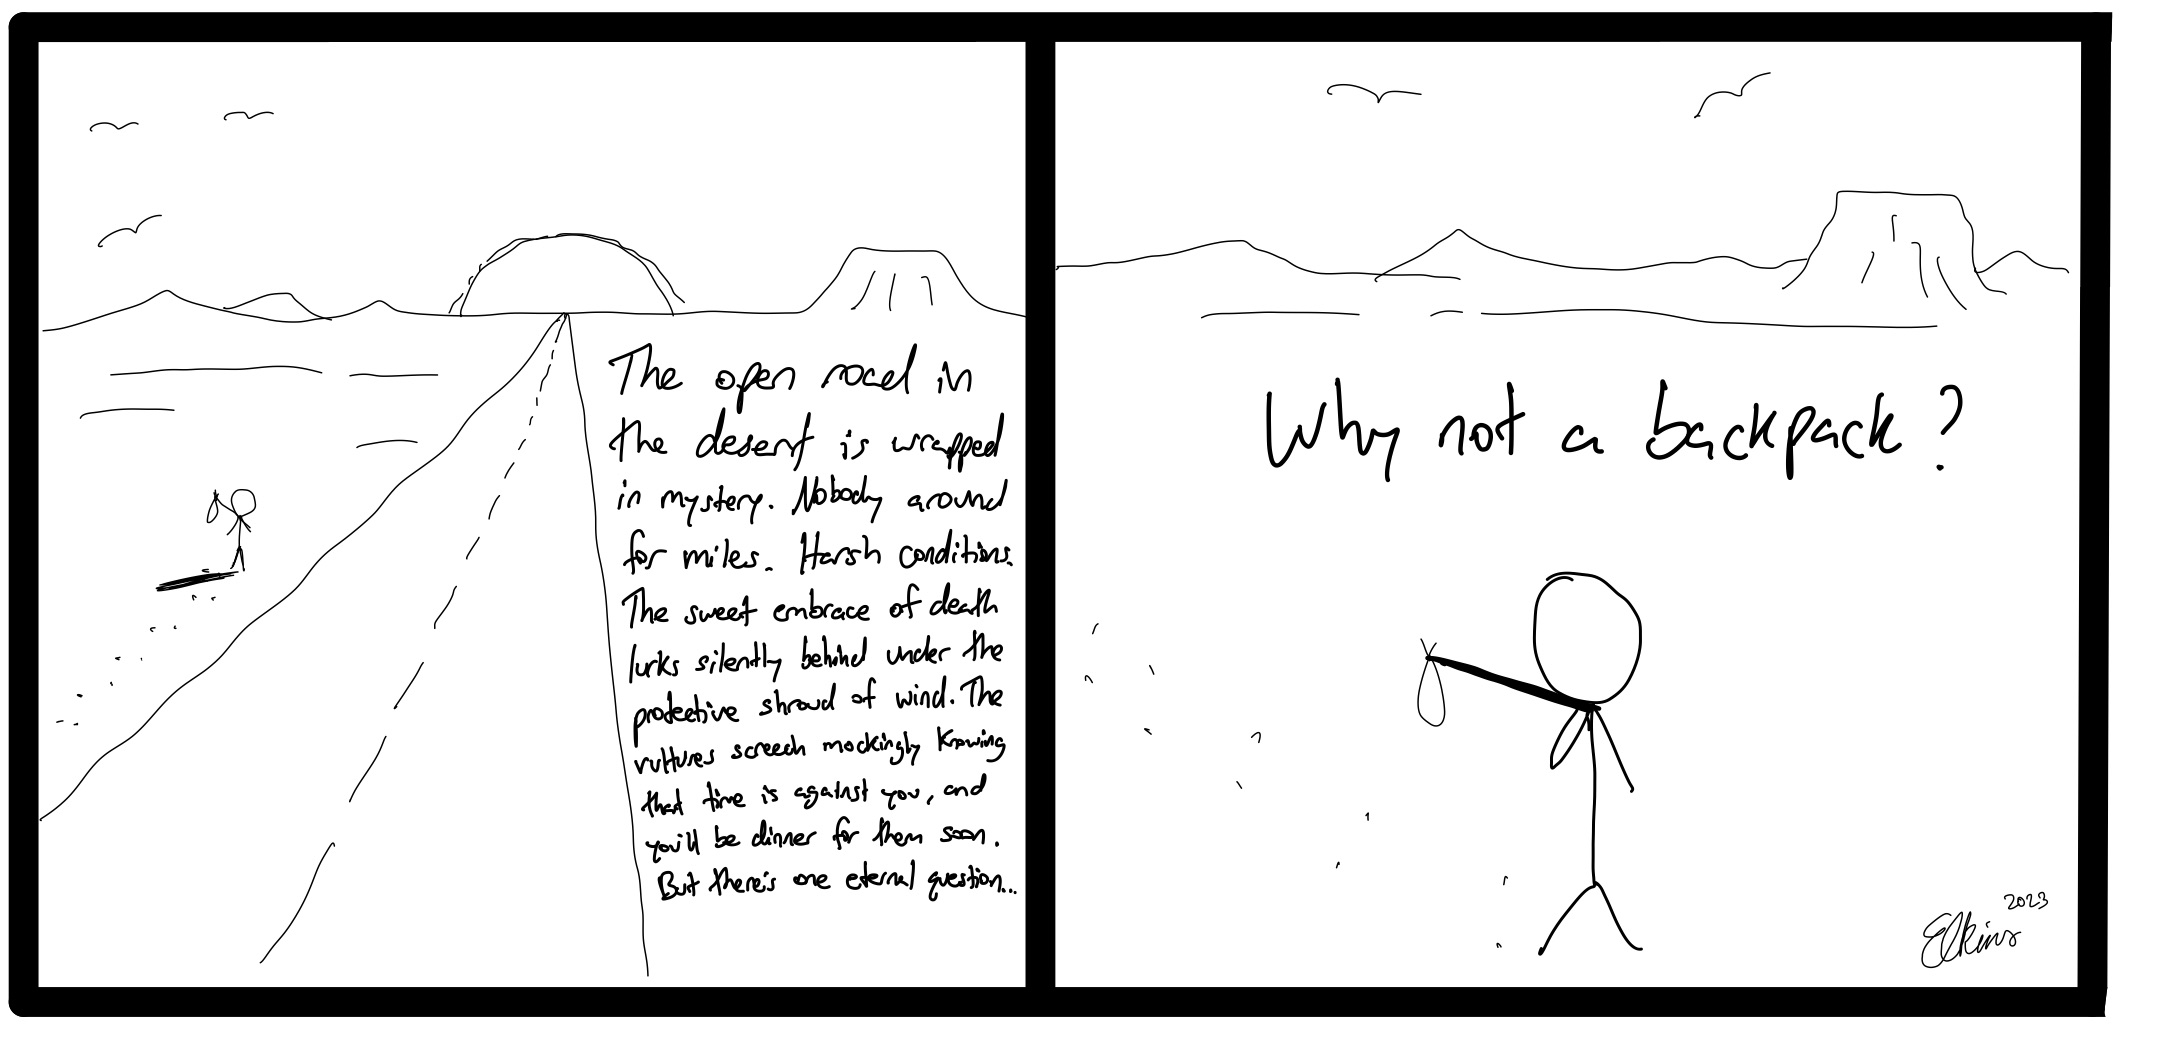 The open road in
the desert is wrapped
in mystery. Nobody around
for miles. Harsh conditions.
The sweet embrace of death
lurks silently behind under the
protective shroud of wind. The
vultures screech mockingly knowing
that time is against you, and
you'll be dinner for them soon.
But there's one eternal question...
Why not a backpack?
2023
Elkins